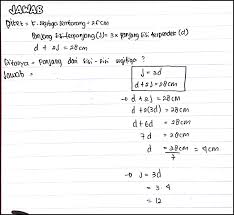 JAWAB
Diket = k. segitiga sembarang = 28 cm
Panjang sisi terpanjang (s) = 3 x panjang sisi terpendek (d)
d + 2s = 28 cm
Ditanya = Panjang dari sisi - sisi segitiga ?
Jawab =
s = 3d
d + 2s = 28 cm
→ d + 2s = 28 cm
d + 2(3d) = 28 cm
d + 6d = 28 cm
7d = 28 cm
d = 28 cm / 7 = 4 cm
→ s = 3d
= 3 . 4
= 12